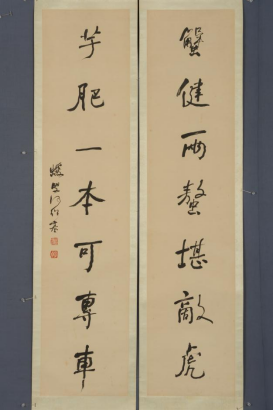 蟹健兩螯堪敵虎
芋肥一本可專車